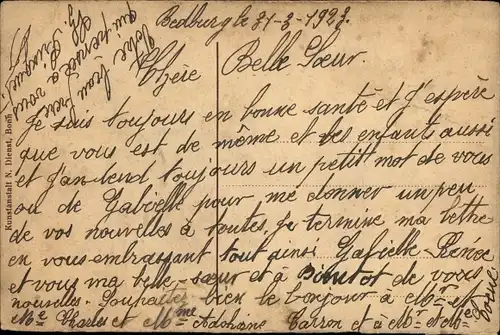 Bedburg le 21-3-1923.
Chère Belle Sœur.
Je suis toujours en bonne santé et J'espère
que vous est de même et les enfants aussi
et J'antend toujours un petit mot de vous
ou de Gabielle pour me donner un peu
de vos nouvelles à toutes, Je termine ma lettre
en vous embrassant tout ainsi Gabielle-Renée
et vous ma belle-sœur et à Bientot de vous
nouvelles - Souhaitter bien le bonjour à Mr et
Me Charles et Mme Adolphine et à Mr et Me
Votre beau frère
qui pense a vous
Kunstanstalt N. Dienst, Bonn